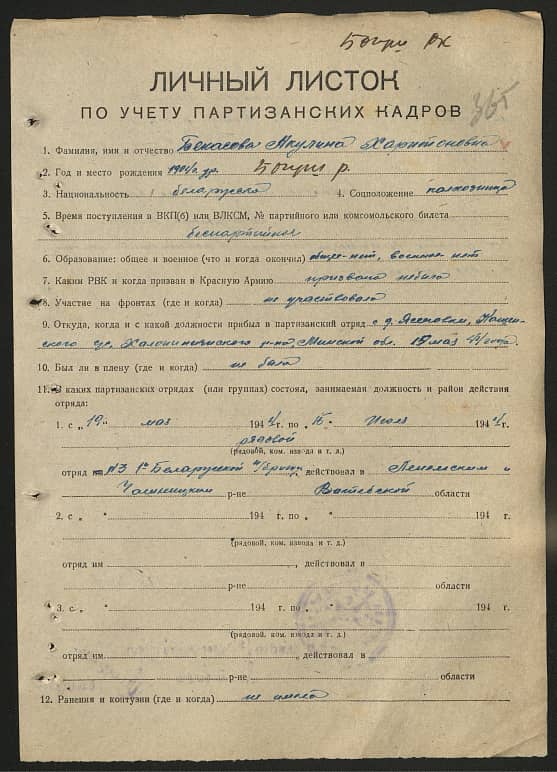 ЛИЧНЫЙ ЛИСТОК
ПО УЧЕТУ ПАРТИЗАНСКИХ КАДРОВ
1. Фамилия, имя и отчество Бекасова Акулина Харитоновна
2. Год и место рождения
3. Национальность беларуска 4. Соцположение колхозница
5. Время поступления в ВКП(б) или ВЛКСМ, № партийного или комсомольского билета
беспартийная
6. Образование: общее и военное (что и когда окончил) общее-нет, военное-нет
7. Каким РВК и когда призван в Красную Армию призвана небыла
8. Участие на фронтах (где и когда) не участвовала
9. Откуда, когда и с какой должности прибыл в партизанский отряд с д.
р-на, Минской обл. 19 мая 44 года
10. Был ли в плену (где и когда) не была
11. В каких партизанских отрядах (или группах) состоял, занимаемая должность и район действия
отряда:
1. с „19" мая 1944 г. по „15" Июля 1944 г.
рядовой
(рядовой, ком. взвода и т. д.)
отряд №3 1й Беларусской п/бриг , действовал в и
р-не Витебской области
2. с „ " 194 г. по „ " 194 г.
(рядовой, ком. взвода и т. д.)
отряд им , действовал в
р-не области
3. с „ " 194 г. по „ " 194 г.
(рядовой, ком. взвода и т. д.)
отряд им , действовал в
р-не области
12. Ранения и контузии (где и когда) не имела